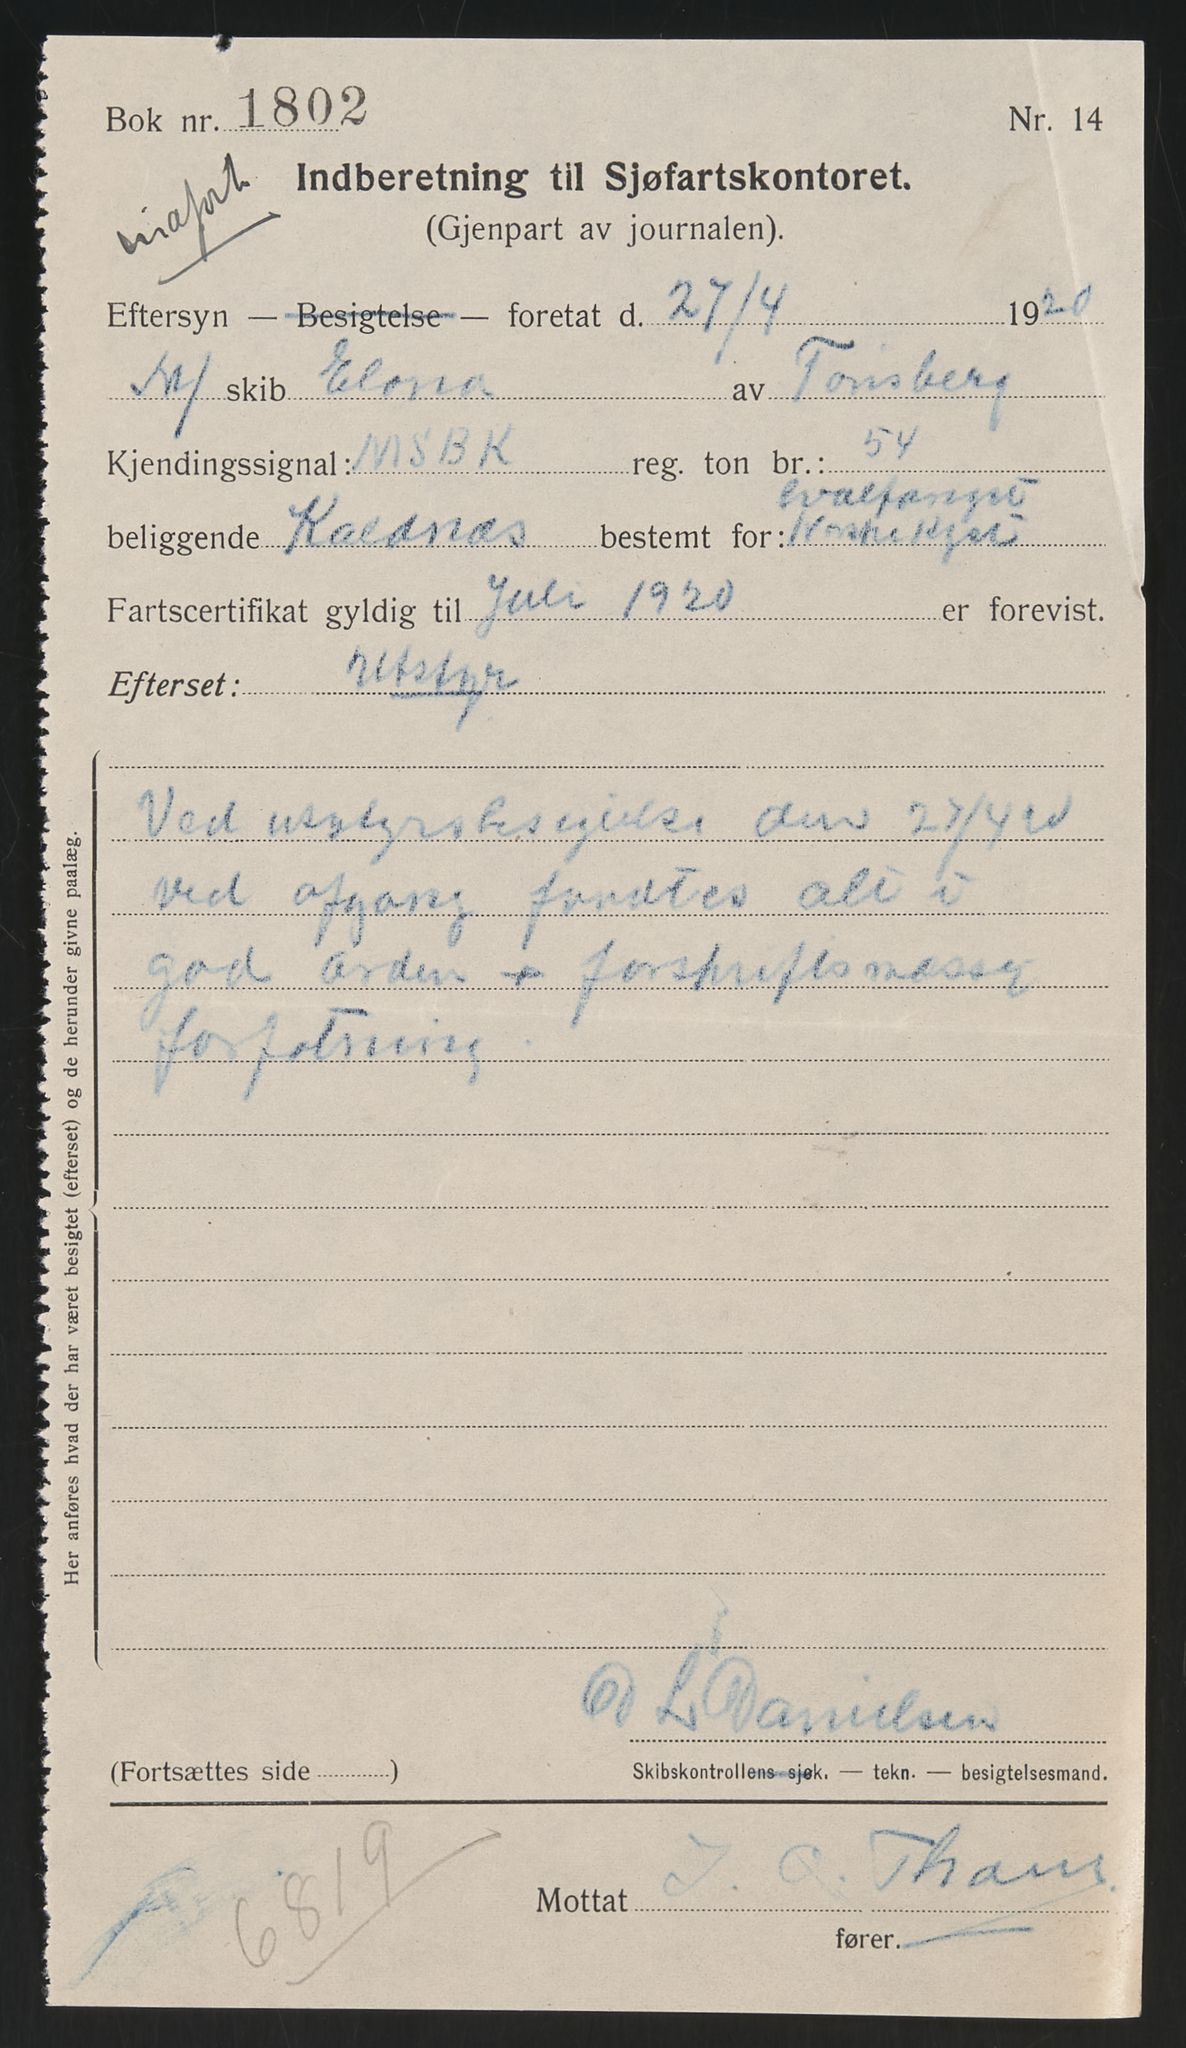 Bok nr. 1802 Nr. 14
Indberetning til Sjøfartskontoret.
(Gjenpart av journalen).
Eftersyn — Besigtelse — foretat d. 27/4 1920
skib Elona av Tønsberg
Kjendingssignal: MSBK reg. ton br.: 54
hvalfangst
beliggende Kaldnæs bestemt for: Norske Kyst
Fartscertifikat gyldig til Juli 1920 er forevist.
Efterset: Utstyr
Her anføres hvad der har været besigtet (efterset) og de herunder givne paalæg.
Ved utstyrsbesigtelse den 27/4 20
ved afgang fandtes alt i
god orden + forskriftsmæssig
forfatning.
L. Danielsen
(Fortsættes side )
Skibskontrollens sjøk. — tekn. — besigtelsesmand.
6819
Mottat
fører.